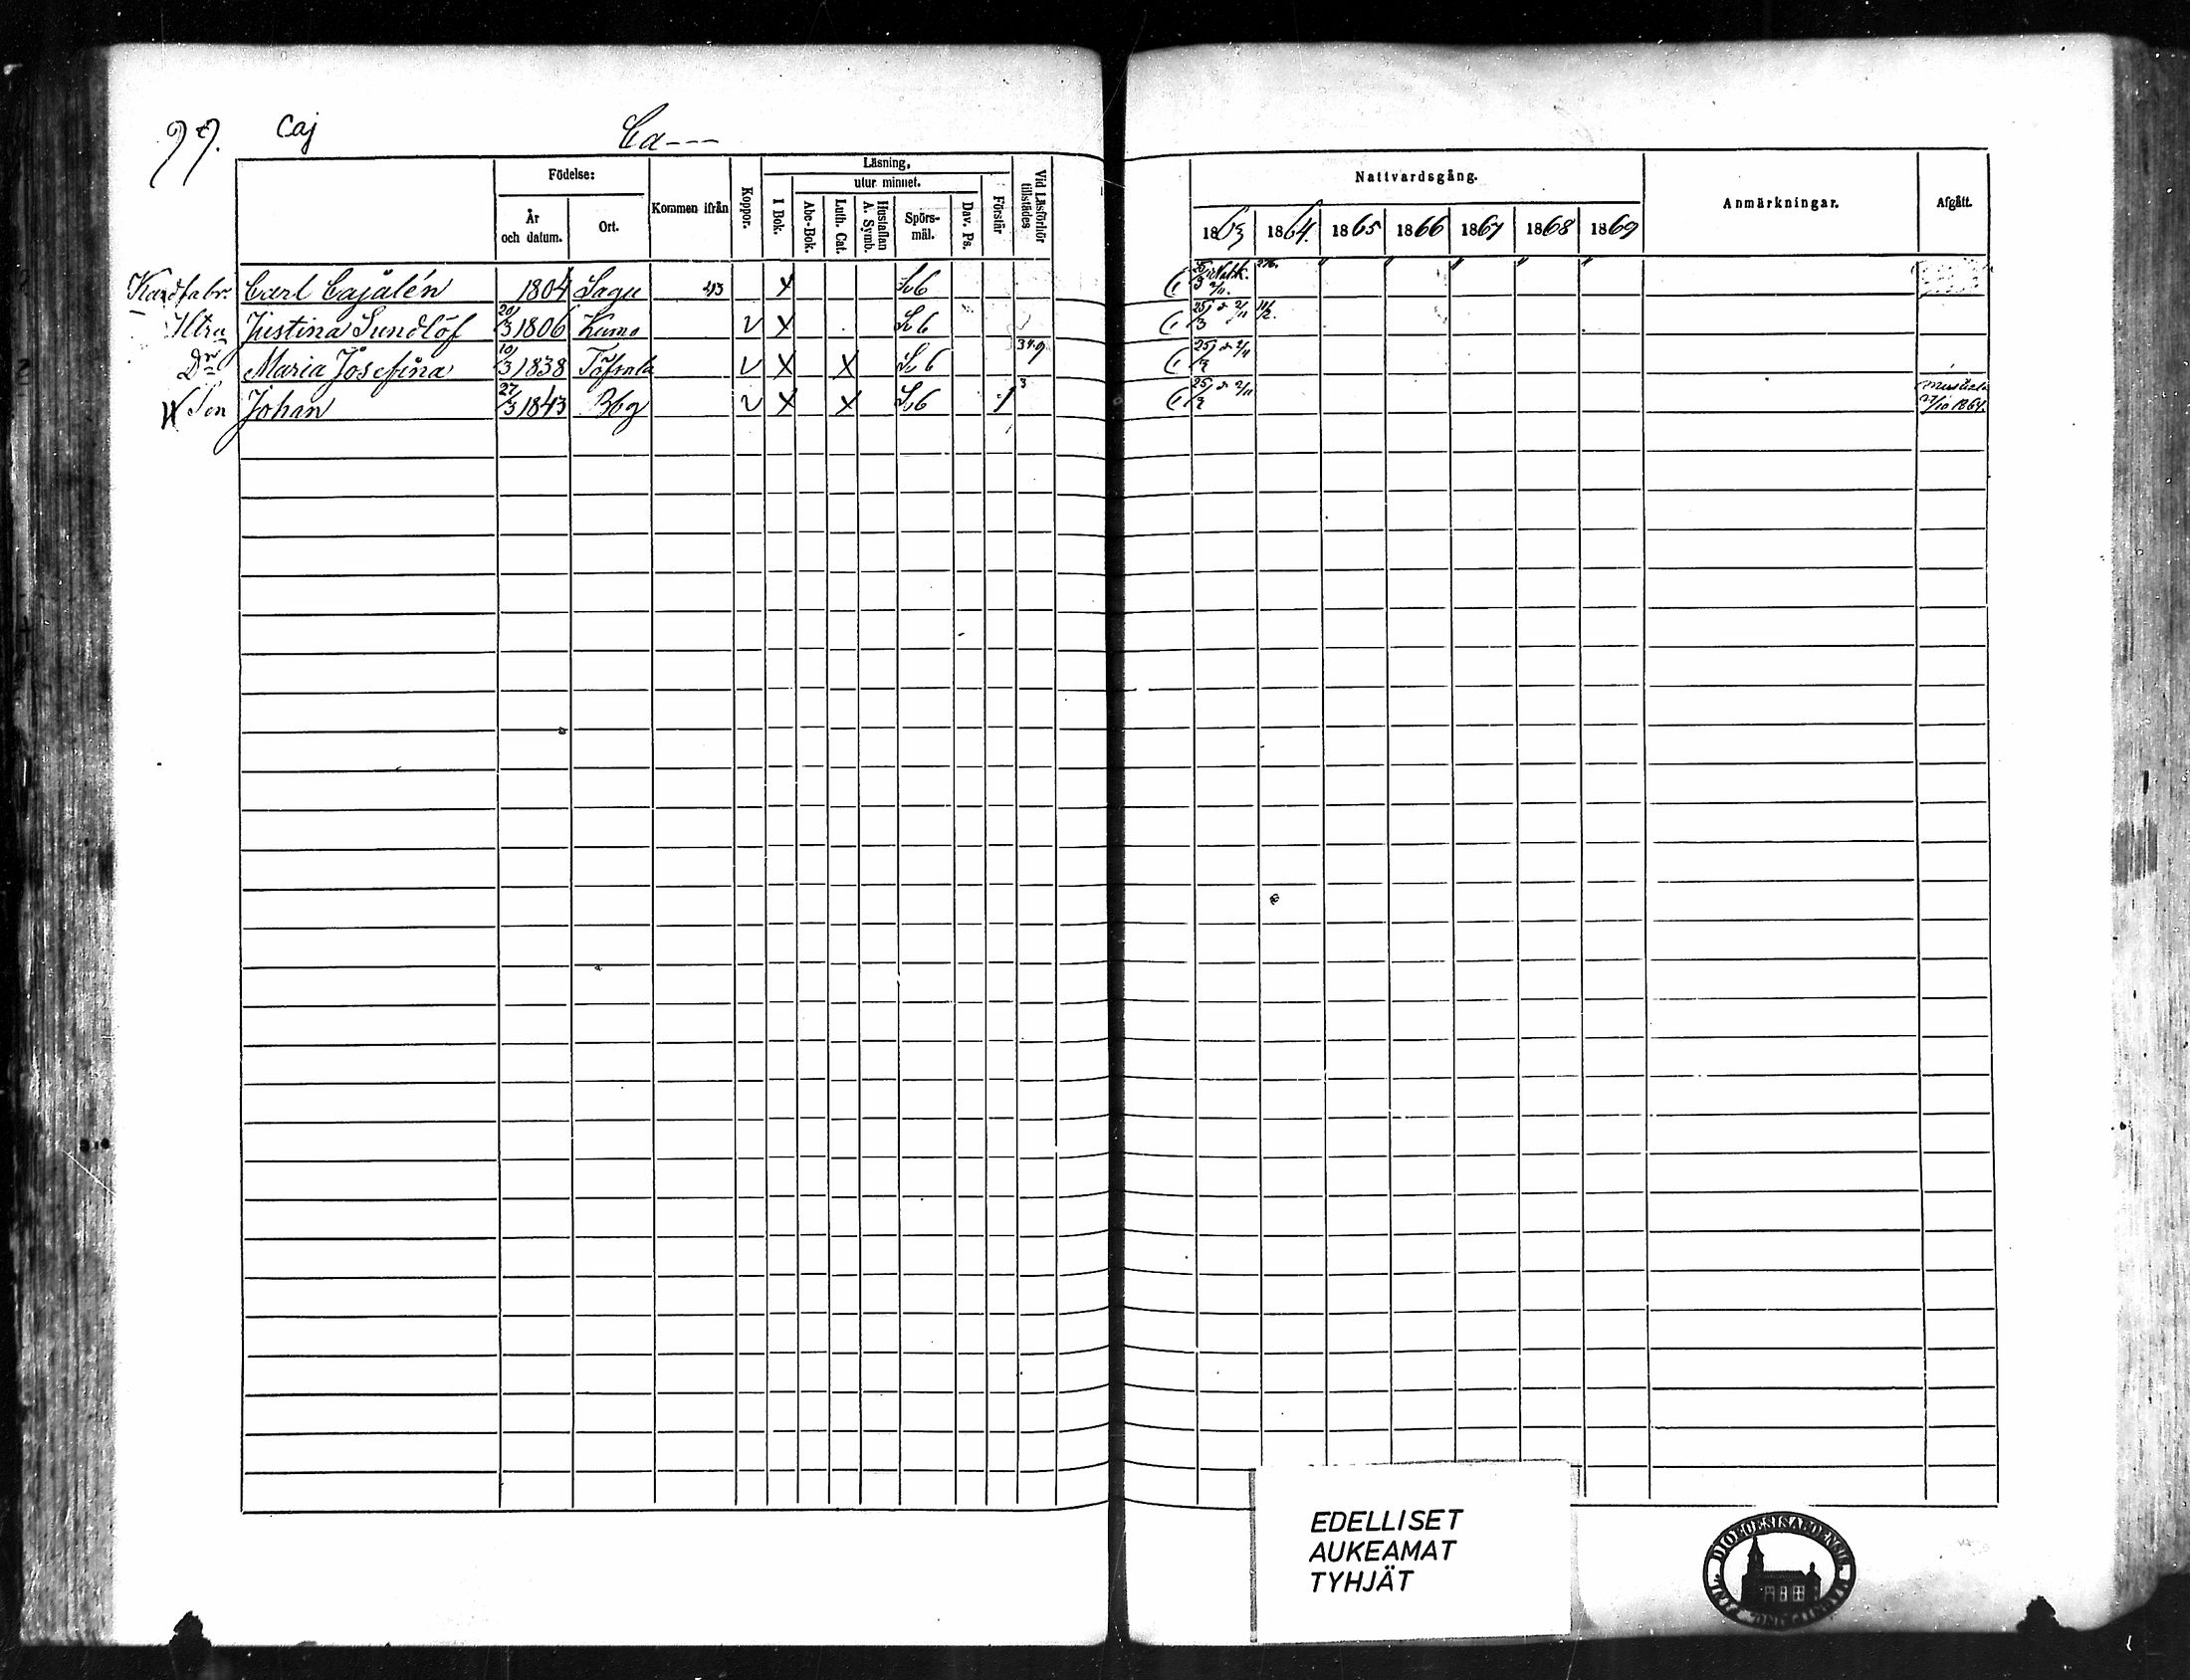 99. Caj Ca---
Födelse: Kommen ifrån Koppor. Läsning, Vid Läsförhör tillstädes Nattvardsgång. Anmärkningar. Afgått.
utur minnet.
År och datum. Ort. I Bok. Abc-Bok. Luth. Cat. Hustaflan A. Symb. Spörs-mål. Dav. Ps. Förstår 1863 1864. 1865 1866 1867 1868 1869
Kardfabr. Carl Cajalén 1804 Sagu 213 X Sv 6
Htru Justina Sundlöf 20/3 1806 Kumo v X Sv 6 25/3 & 2/11
Dr Maria Josefina 10/3 1838 Töfsala v X X Sv 6 25/3 & 2/11
Son Johan 27/3 1843 Bbg v X X Sv 6 1 3 25/3 & 2/11 27/10 1864.
EDELLISET
AUKEAMAT
TYHJÄT